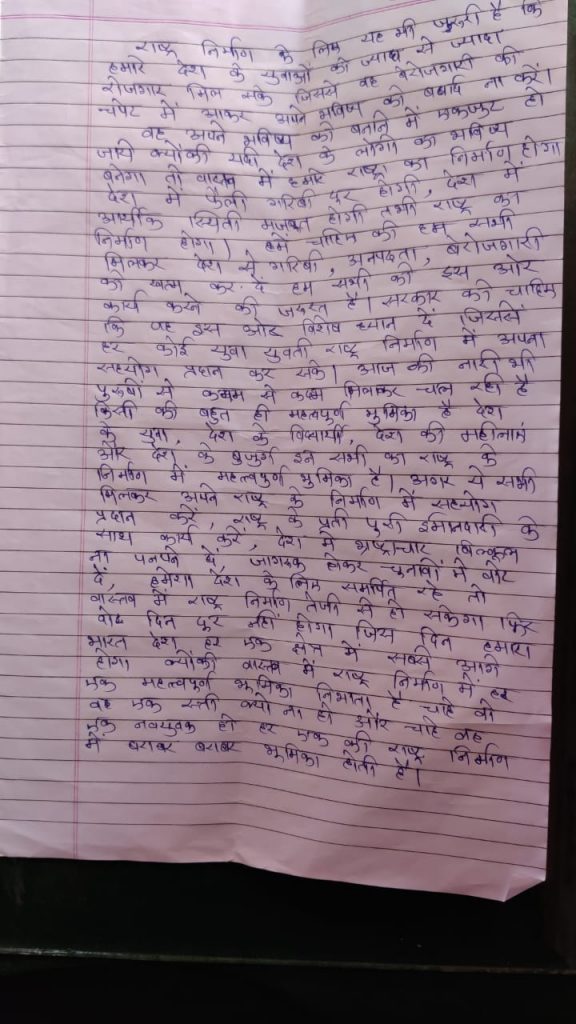 राष्ट्र निर्माण के लिए यह भी जुरुरी है कि
हमारे देश के युवाओं को ज्यादा से ज्यादा
रोजगार मिल सके जिससे वह बेरोजगारी की
चपेट में आकर अपने भविष्य को बर्बाद ना करें।
वह अपने भविष्य को बनाने में एकजुट हो
जाये क्योंकी यदा देश के लोगो का भविष्य
बनेगा तो वास्तव में हमारे राष्ट्र का निर्माण होगा
देश में फैली गरिबी दूर होगी, देश में
आर्थीक स्थिती मजबूत होगी तभी राष्ट्र का
निर्माण होगा। हमें चाहिए की हम सभी
मिलकर देश से गरिबी, अनपढ़ता, बेरोजगारी
को खत्म कर दें हम सभी को इस ओर
कार्य करने की जरुरत है। सरकार को चाहिए
कि वह इस ओर विशेष ध्यान दें जिससे
हर कोई युवा युवती राष्ट्र निर्माण में अपना
सहयोग प्रदान कर सके। आज की नारी भी
पुरुषों से कदम से कदम मिलाकर चल रही है
किसी की बहुत ही महत्वपूर्ण भुमिका है देश
के युवा, देश के विद्यार्थी, देश की महीलाएं
और देश के बुजुर्ग इन सभी का राष्ट्र के
निर्माण में महत्वपूर्ण भुमिका है। अगर ये सभी
मिलकर अपने राष्ट्र के निर्माण में सहयोग
प्रदान करें, राष्ट्र के प्रती पुरी इमानदारी के
साथ कार्य करें, देश में भ्रष्टाचार बिल्कुल
ना पनपने दें, जागरुक होकर चुनावों में वोट
दें, हमेशा देश के लिए समर्पित रहे तो
वास्तव में राष्ट्र निर्माण तेजी से हो सकेगा फिर
वोह दिन दूर नहीं होगा जिस दिन हमारा
भारत देश हर एक क्षेत्र में सबसे आगे
होगा क्योंकी वास्तव में राष्ट्र निर्माण में हर
एक महत्वपूर्ण भूमिका निभाता है चाहे वो
वह एक स्त्री क्यो ना हो और चाहे वह
एक नवयुवक हो हर एक की राष्ट्र निर्माण
में बराबर बराबर भूमिका होती है।